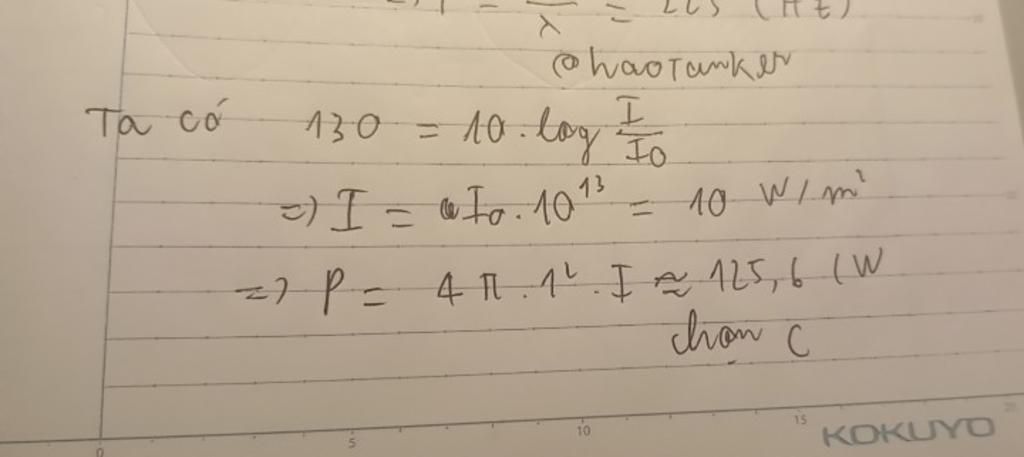 λ = 225 (Hz)
@haoTanker
Ta có 130 = 10 . log I/I0
=> I = I0 . 10¹³ = 10 W/m²
=> P = 4π . 1² . I ≈ 125,6 (W
chọn C
0 5 10 15 20
KOKUYO